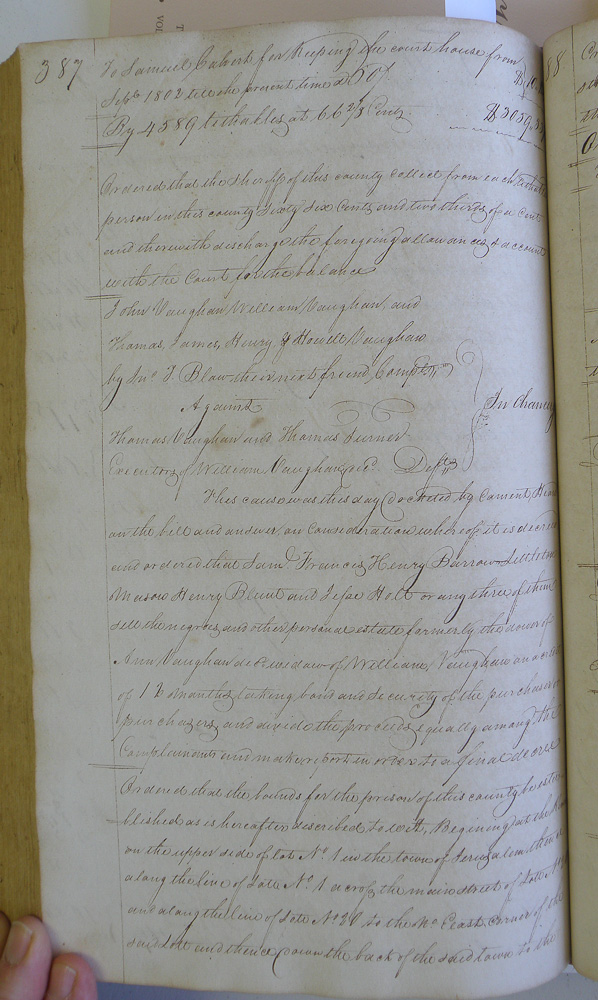 387
To Samuel Calvert for keeping the court house from
Septr 1802 till the present time a 60/ $10.
By 4589 tithables at 66 2/3 Cents. $3059.3
Ordered that the Sheriff of this county collect from each tithable
person in this county Sixty Six Cents and two thirds of a Cent
and therewith discharge the foregoing allowances & account
with the Court for the balance
John Vaughan William Vaughan, and
Thomas, James, Henry & Howell Vaughan
by Jno T. Blow their next friend, Complts
Against
In Chancery
Thomas Vaughan and Thomas Turner
Executors of William Vaughan decd. Defts
This cause was this day docketed by Consent, Heard
on the bill and answer, on Consideration whereof it is decreed
and ordered that Saml. Francis, Henry Barrow Littleton
Mason Henry Blunt and Jesse Holt or any three of them
sell the negroes and other personal estate formerly the dower of
Ann Vaughan decd widow of William Vaughan on a credit
of 12 months taking bond and security of the purchaser or
purchasers and divide the proceeds equally among the
Complainants and make report in order to a final decree
Ordered that the bounds for the prison of this county be esta
blished as is hereafter described to wit, Begining at the
on the upper side of lot No 1 in the town of Jerusalem thence
along the line of Lott No 1 across the main street of Lott No
and along the line of Lott No 20 to the No East corner of the
said Lott and thence down the back of the said town to the
88